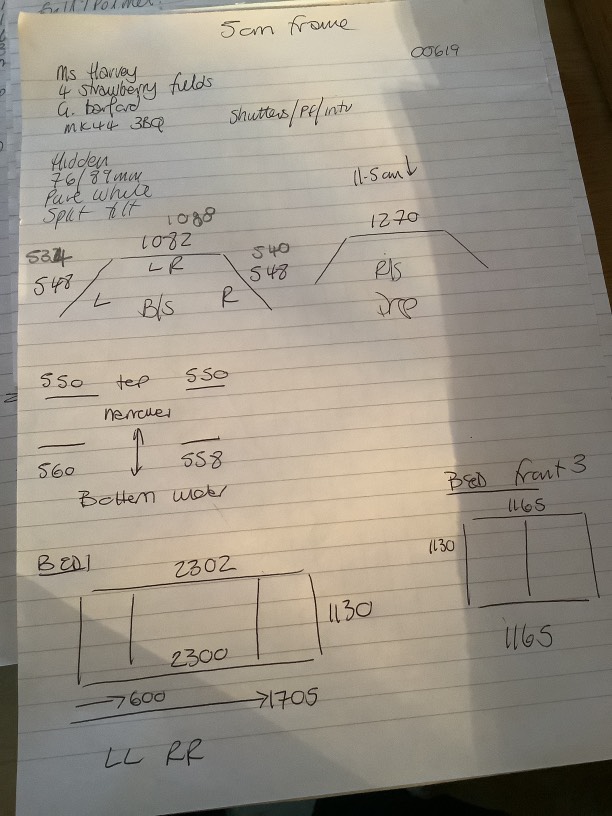 5cm frame
00619
Ms Harvey
4 strawberry fields
G. barford
MK44 3BQ
Shutters/Pf/intu
Hidden
76/89mm
Pure white
Split tilt
11.5cm↓
1088
1082
1270
534
540
548
LR
548
R/S
L
B/S
R
550 top 550
narrower
560
558
Bottom wider
BED front 3
1165
1130
1165
BED 1
2302
1130
2300
→600 →1705
LL RR